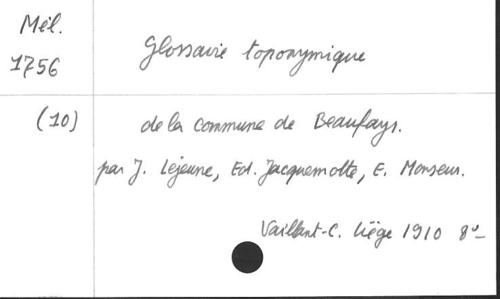 Mél.
1756
Glossaire toponymique
(10)
de la commune de Beaufays.
par J. Lejeune, Ed. Jacquemotte, E. Monseur.
Vaillant-C. Liége 1910 8º